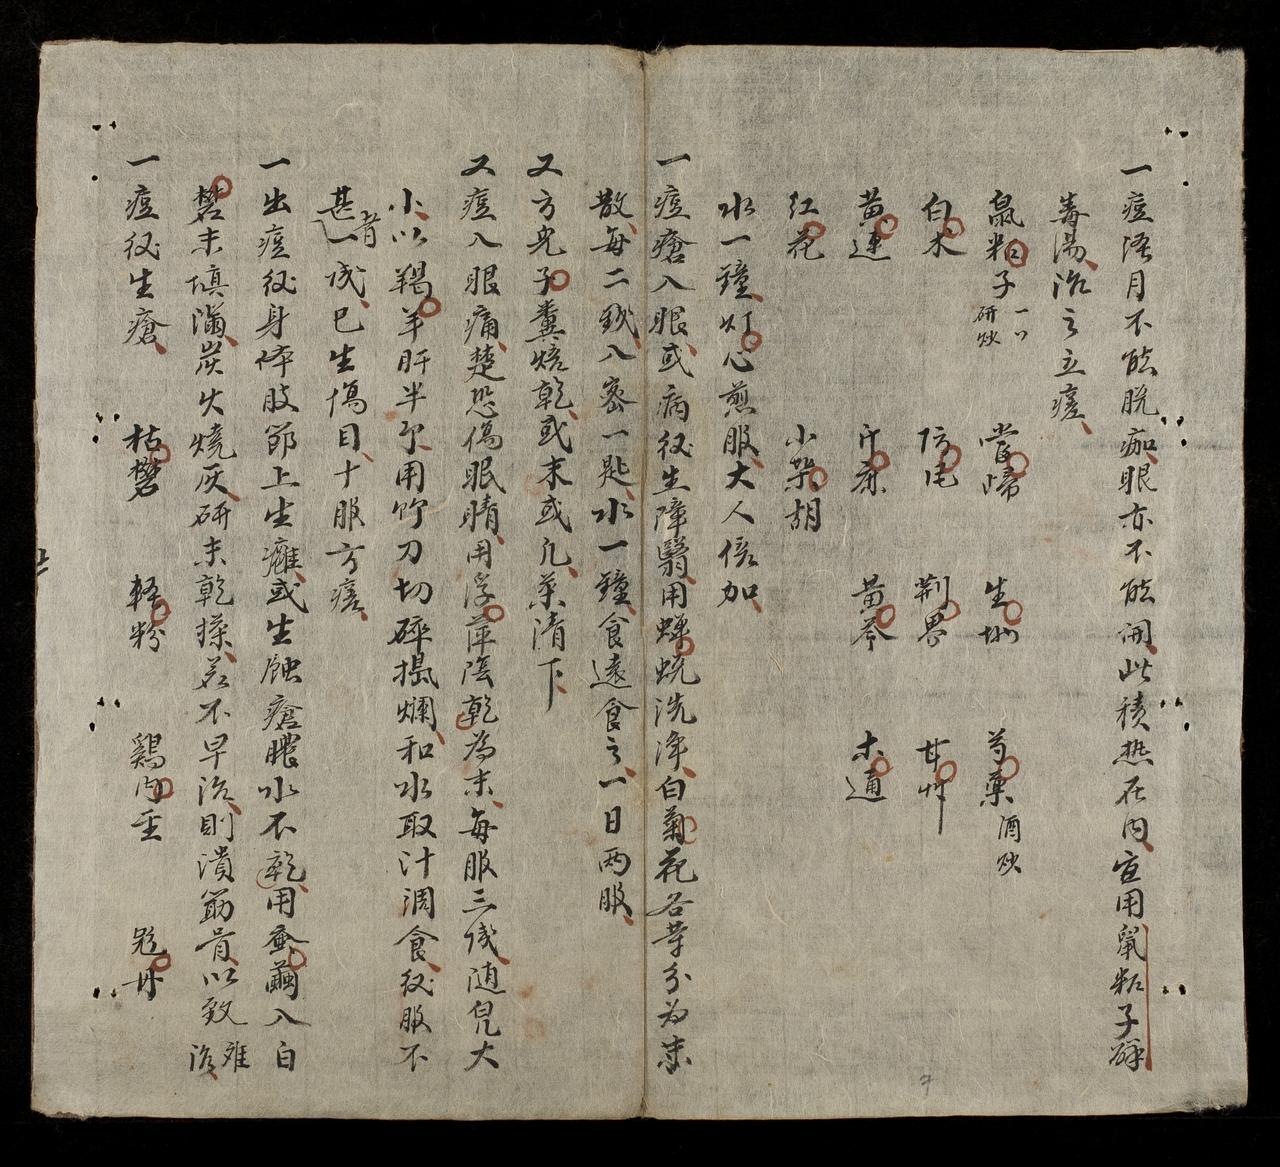 一痘弥月不能脱痂眼亦不能開此積热在内宜用鼠粘子解
毒湯治之立瘥
鼠粘子研炒 當歸 生地 芍藥酒炒
白木 防风 荆界 甘艸
黄連 黄芩 木通
红花 小柴胡
水一鐘灯心煎服大人倍加
一痘瘡入眼或病後生障翳用蟬蜕洗净白菊花各等分为末
散每二钱入蜜一匙水一鐘食遠食之一日两服
又方兔子糞焙乾或末或丸茶清下
又痘入眼痛楚恐傷眼睛用浮萍陰乾為末每服三钱随兒大
小以羯羊肝半个用竹刀切碎搗爛和水取汁調食後服不
甚者一服已生傷目十服方瘥
一出痘後身体肢節上生癰或生蝕瘡膿水不乾用蚕繭入白
礬末填滿炭火燒灰研末乾搽若不早治則潰筋骨以致难治
一痘後生瘡 枯礬 軽粉 鷄内金 丹